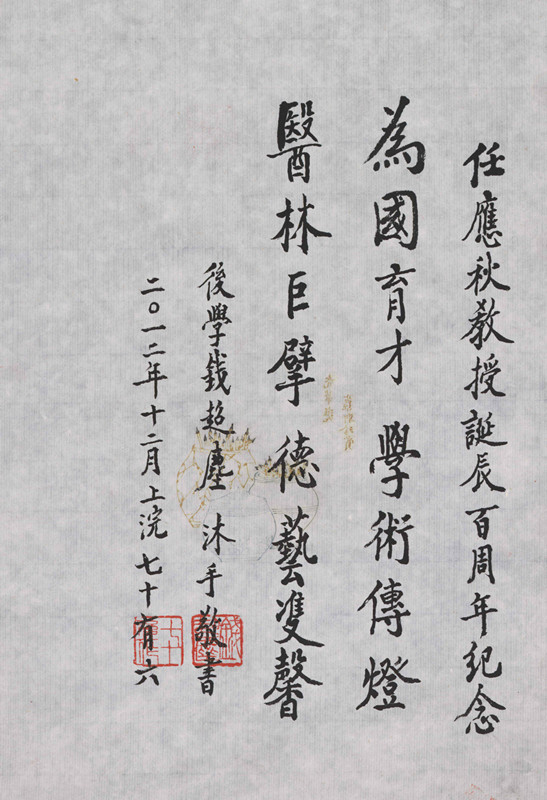 任應秋教授誕辰百周年紀念
為國育才 學術傳燈
醫林巨擘 德藝雙馨
後學錢超塵沐手敬書
二〇一二年十二月上浣七十有六